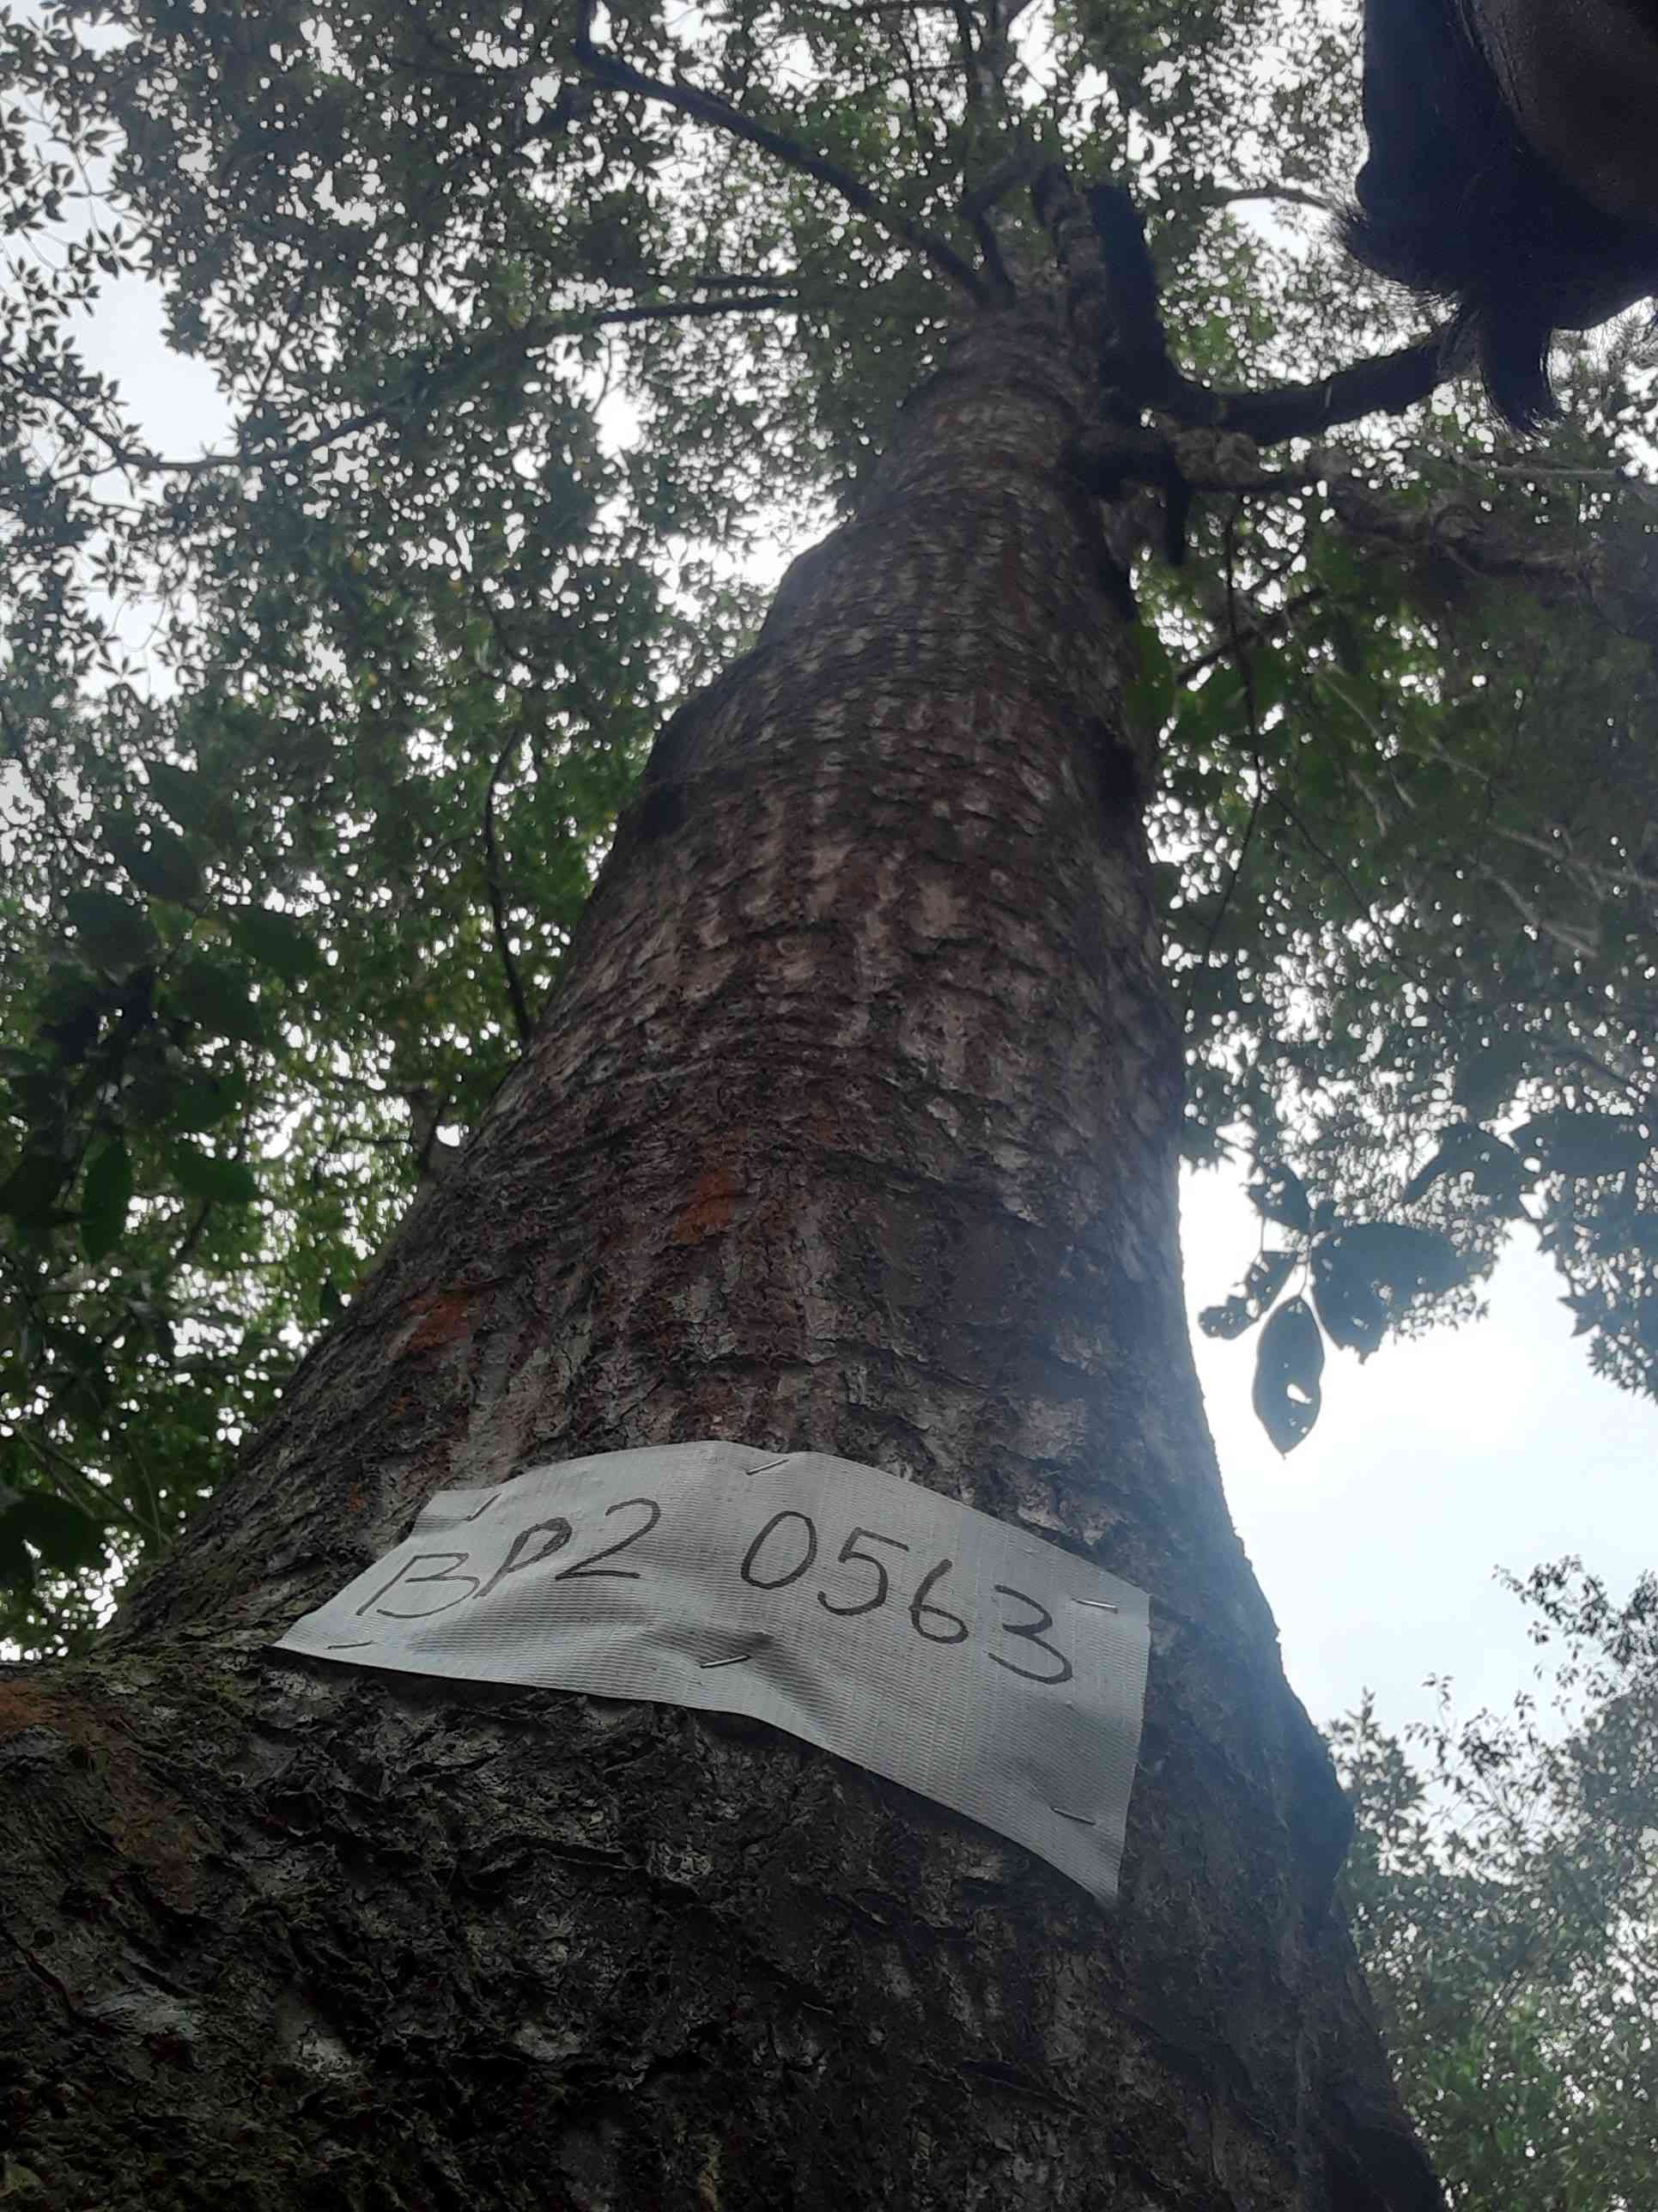 BP2 0563